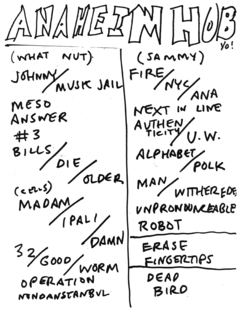 ANAHEIM HUB
YO!
(WHAT NUT)
JOHNNY/
MUSK JAIL
MESO
ANSWER
#3
BILLS/
DIE/
OLDER
MADAM/
IPALI/
DAMN
32/
GOOD/
WORM
OPERATION
NONDANSTANBUL
(SAMMY)
FIRE/
NYC/
ANA
NEXT IN LINE
AUTHEN
TICITY/
U.W.
ALPHABET/
POLK
MAN/
WITHERFED
UNPRONOUNCEABLE
ROBOT
ERASE
FINGERTIPS
DEAD
BIRD